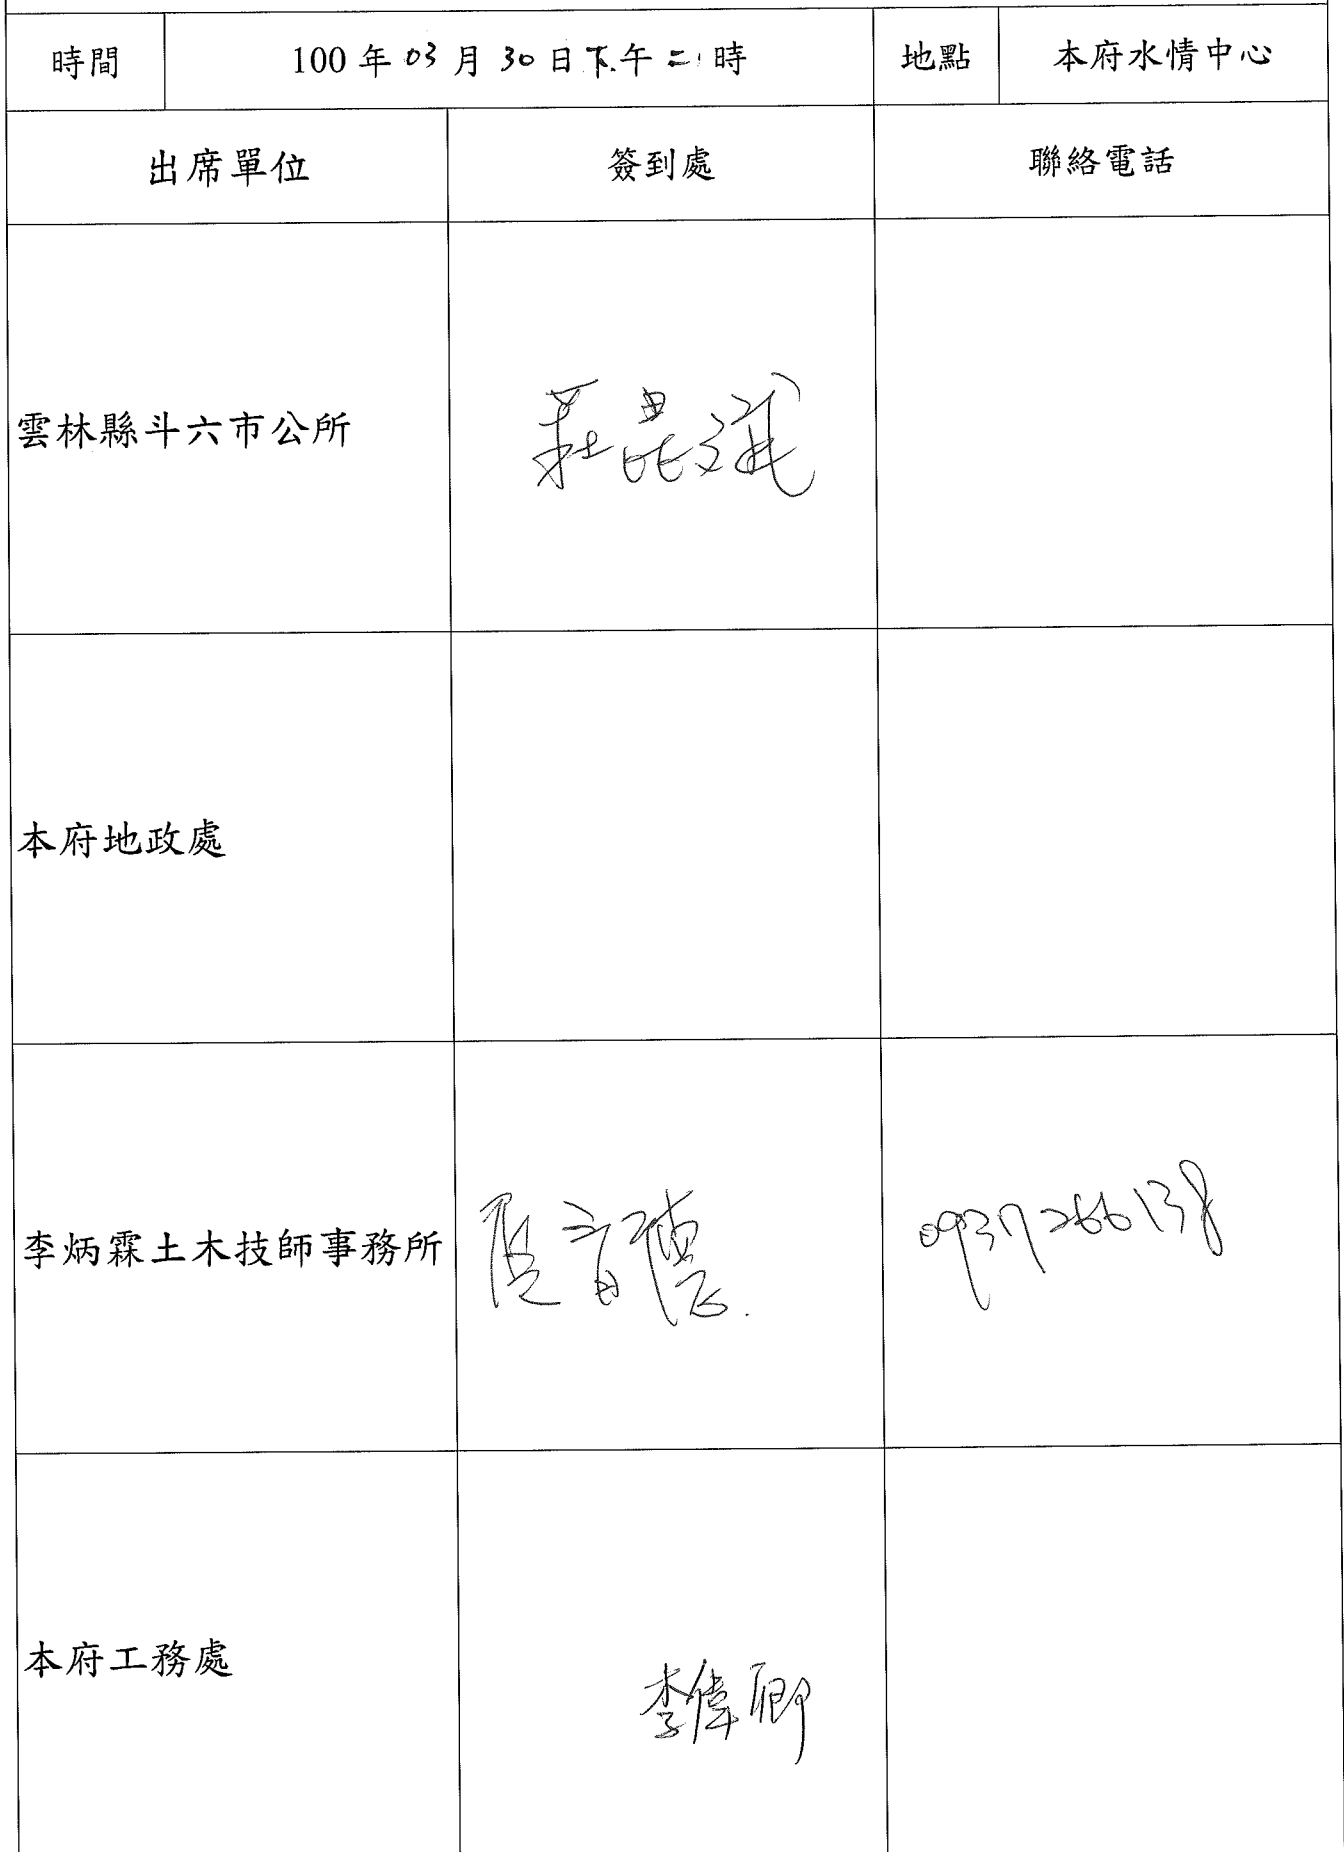 時間 100年03月30日下午二時 地點 本府水情中心
出席單位 簽到處 聯絡電話
雲林縣斗六市公所 莊崑斌
本府地政處
李炳霖土木技師事務所 0937266138
本府工務處 李偉卿